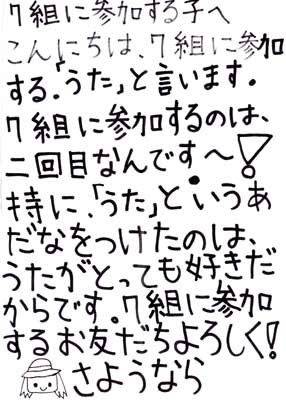 7組に参加する子へ
こんにちは、7組に参加
する「うた」と言います。
7組に参加するのは、
二回目なんです〜!
特に、「うた」というあ
だなをつけたのは、
うたがとっても好きだ
からです。7組に参加
するお友だちよろしく!
さようなら